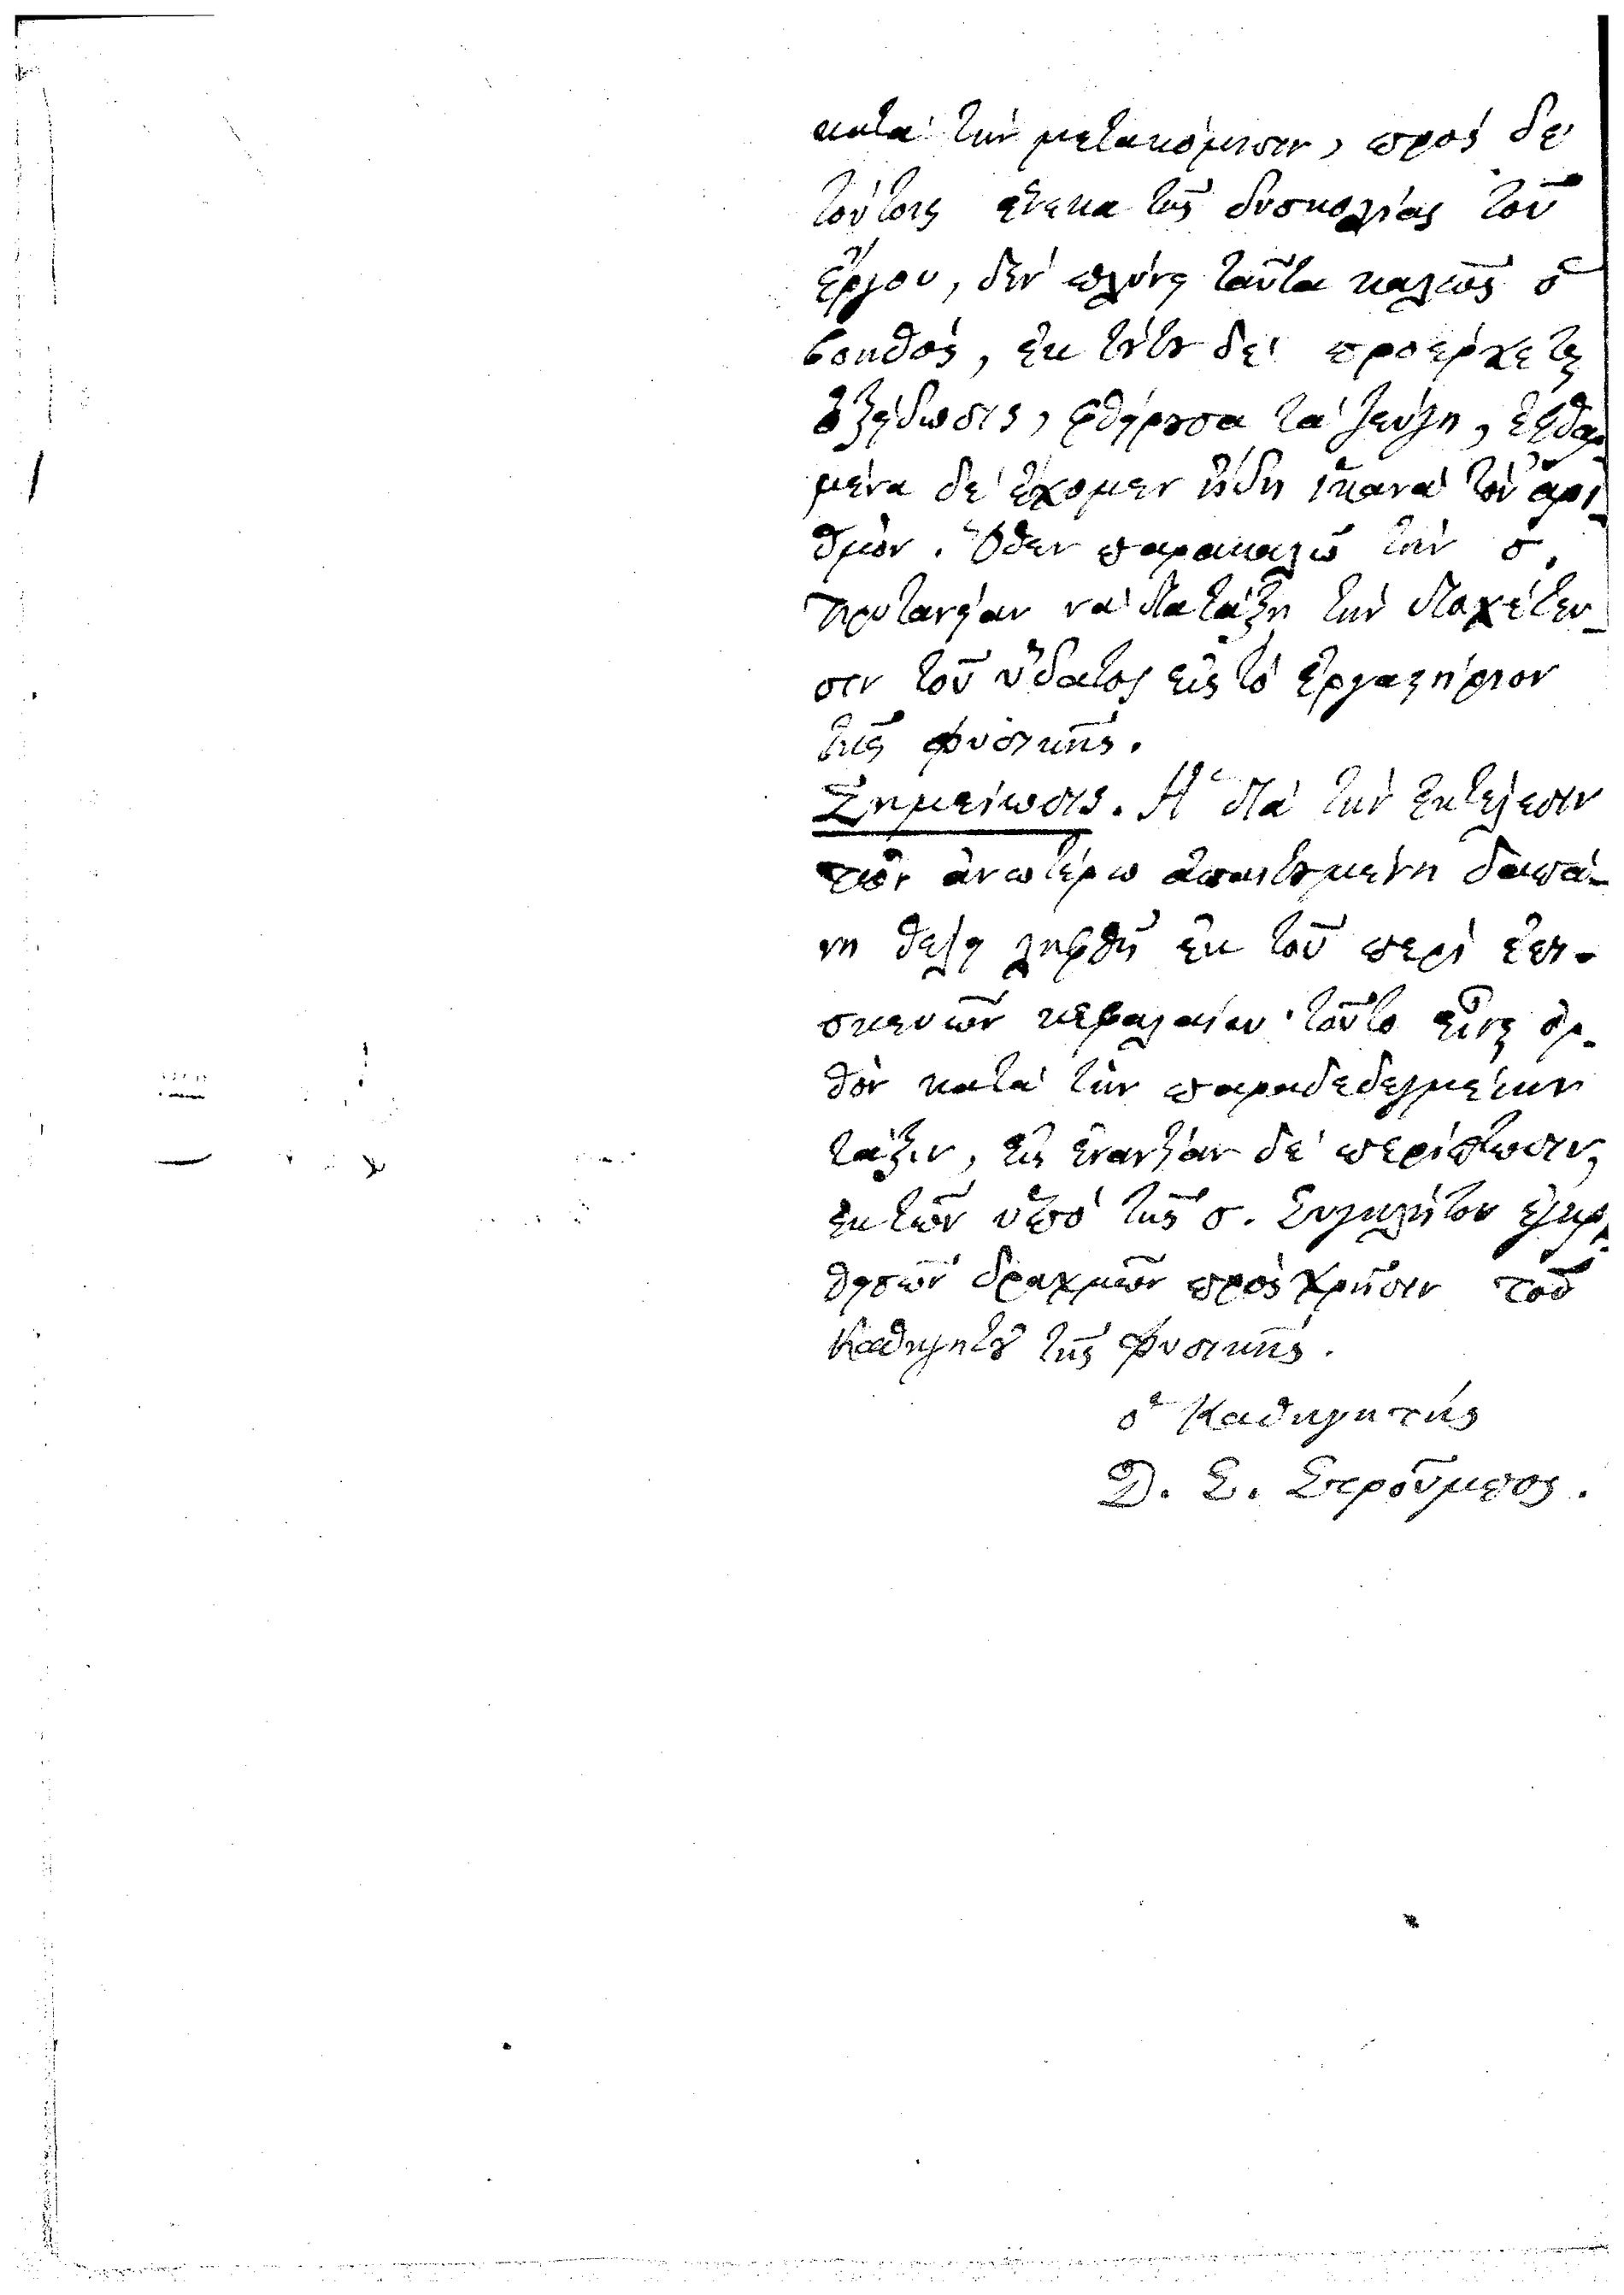 κατὰ τὴν μετακόμισιν, πρὸς δὲ
τούτοις ἕνεκα τῆς δυσκολίας τοῦ
ἔργου, δὲν πλύνει ταῦτα καλῶς ὁ
βοηθὸς, ἐκ τούτου δὲ προέρχεται
ὀξείδωσις, φθείρουσα τὰ ζεύγη, ἐφθαρ-
μένα δὲ ἔχομεν ἤδη ἱκανὰ τὸν ἀρι-
θμὸν. Ὅθεν παρακαλῶ τὴν σ.
Πρυτανείαν νὰ διατάξῃ τὴν διοχέτευ-
σιν τοῦ ὕδατος εἰς τὸ ἐργαστήριον
τῆς φυσικῆς.
Σημείωσις. Ἡ διὰ τὴν ἐκτέλεσιν
τῶν ἀνωτέρω ἀπαιτουμένη δαπά-
νη θέλει ληφθῆ ἐκ τοῦ περὶ ἐπι-
σκευῶν κεφαλαίου· τοῦτο εἶναι ὀρ-
θὸν κατὰ τὴν παραδεδεγμένην
τάξιν, εἰς ἐναντίαν δὲ περίπτωσιν,
ἐκ τῶν ὑπὸ τῆς σ. Συγκλήτου ἐγκρι-
θεισῶν δραχμῶν πρὸς χρῆσιν τοῦ
Καθηγητοῦ τῆς Φυσικῆς.
ὁ Καθηγητής
Δ. Σ. Στροῦμπος.